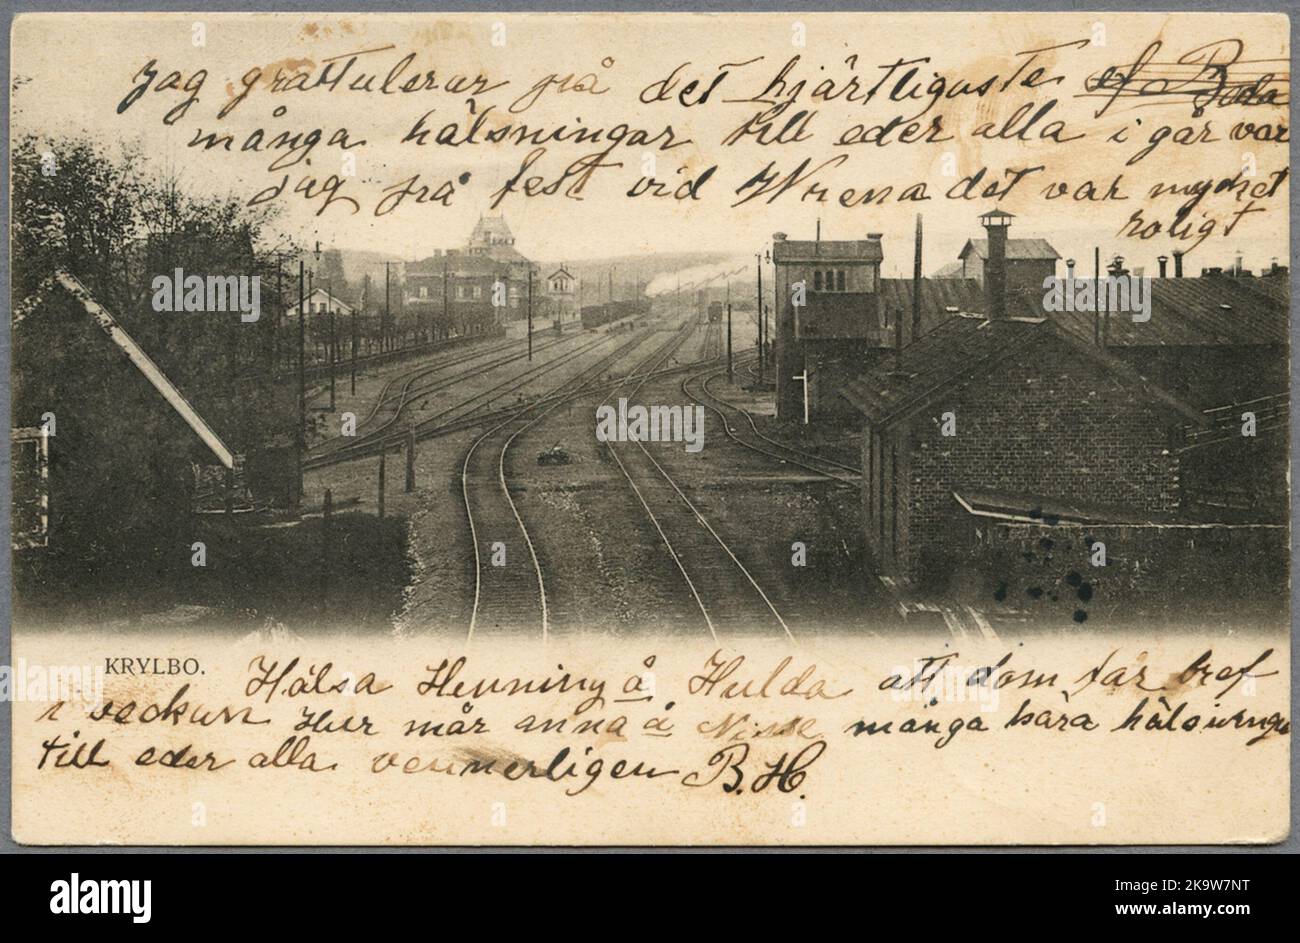 Jag grattulerar på det hjärtligaste
många hälsningar till eder alla i går var
jag på fest vid Wrena det var mycket
roligt
KRYLBO.
Hälsa Henning å Hulda att dom får bref
i veckun Hur mår anna å Nisse många kära hälsningar
till eder alla vennerligen B.H.
alamy
Image ID: 2K9W7NT
www.alamy.com